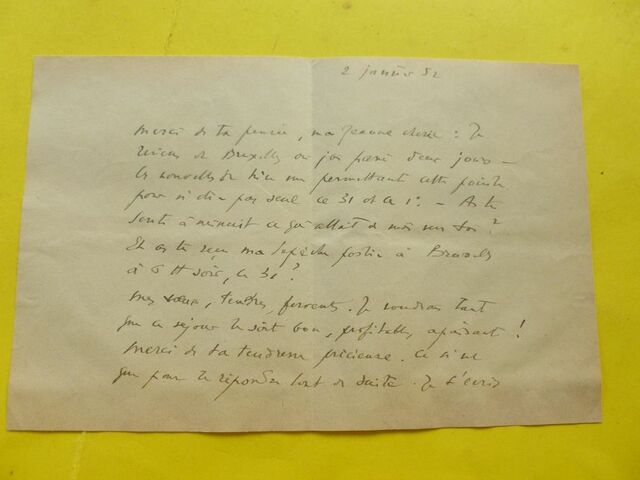 2 janvier 52
Merci de ta pensée, ma Jeanne chérie : Je
reviens de Bruxelles où j'ai passé deux jours —
les nouvelles de me permettant cette pointe
pour n'être pas seul le 31 et le 1er. — As-tu
senti à minuit ce qui allait de moi vers toi ?
Et as-tu reçu ma dépêche postée à Bruxelles
à 6 H soir, le 31 ?
Mes vœux, tendres, fervents. Je voudrais tant
que ce séjour te soit bon, profitable, apaisant !
Merci de ta tendresse précieuse. Ce n'est
que pour te répondre tout de suite. Je t'écris